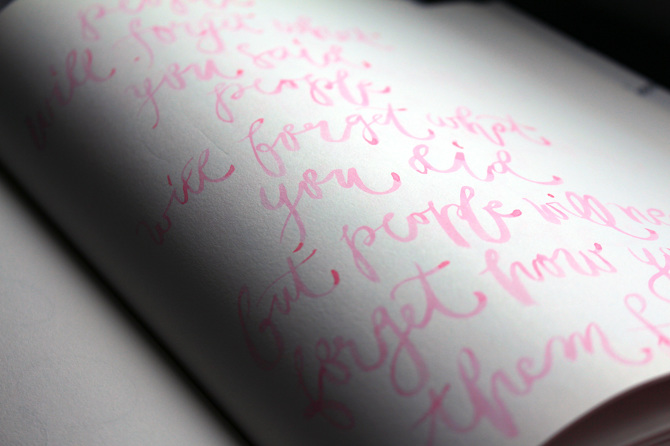 people
will forget what
you said.
people
will forget what
you did.
but people will ne
forget how y
them f